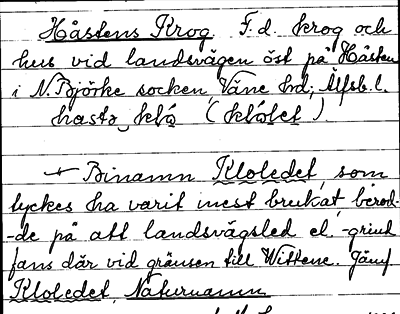 Håstens Krog. F.d. krog och
hus vid landsvägen öst på Håsten
i N. Björke socken, Väne hrd; Älfsb. l.
hasta_klå (klålet).
+ Binamn Kloledet, som
tyckes ha varit mest brukat, beroen-
-de på att landsvägsled el. -grind
fans där vid gränsen till Wittene. Jämf
Kloledet, Naturnamn